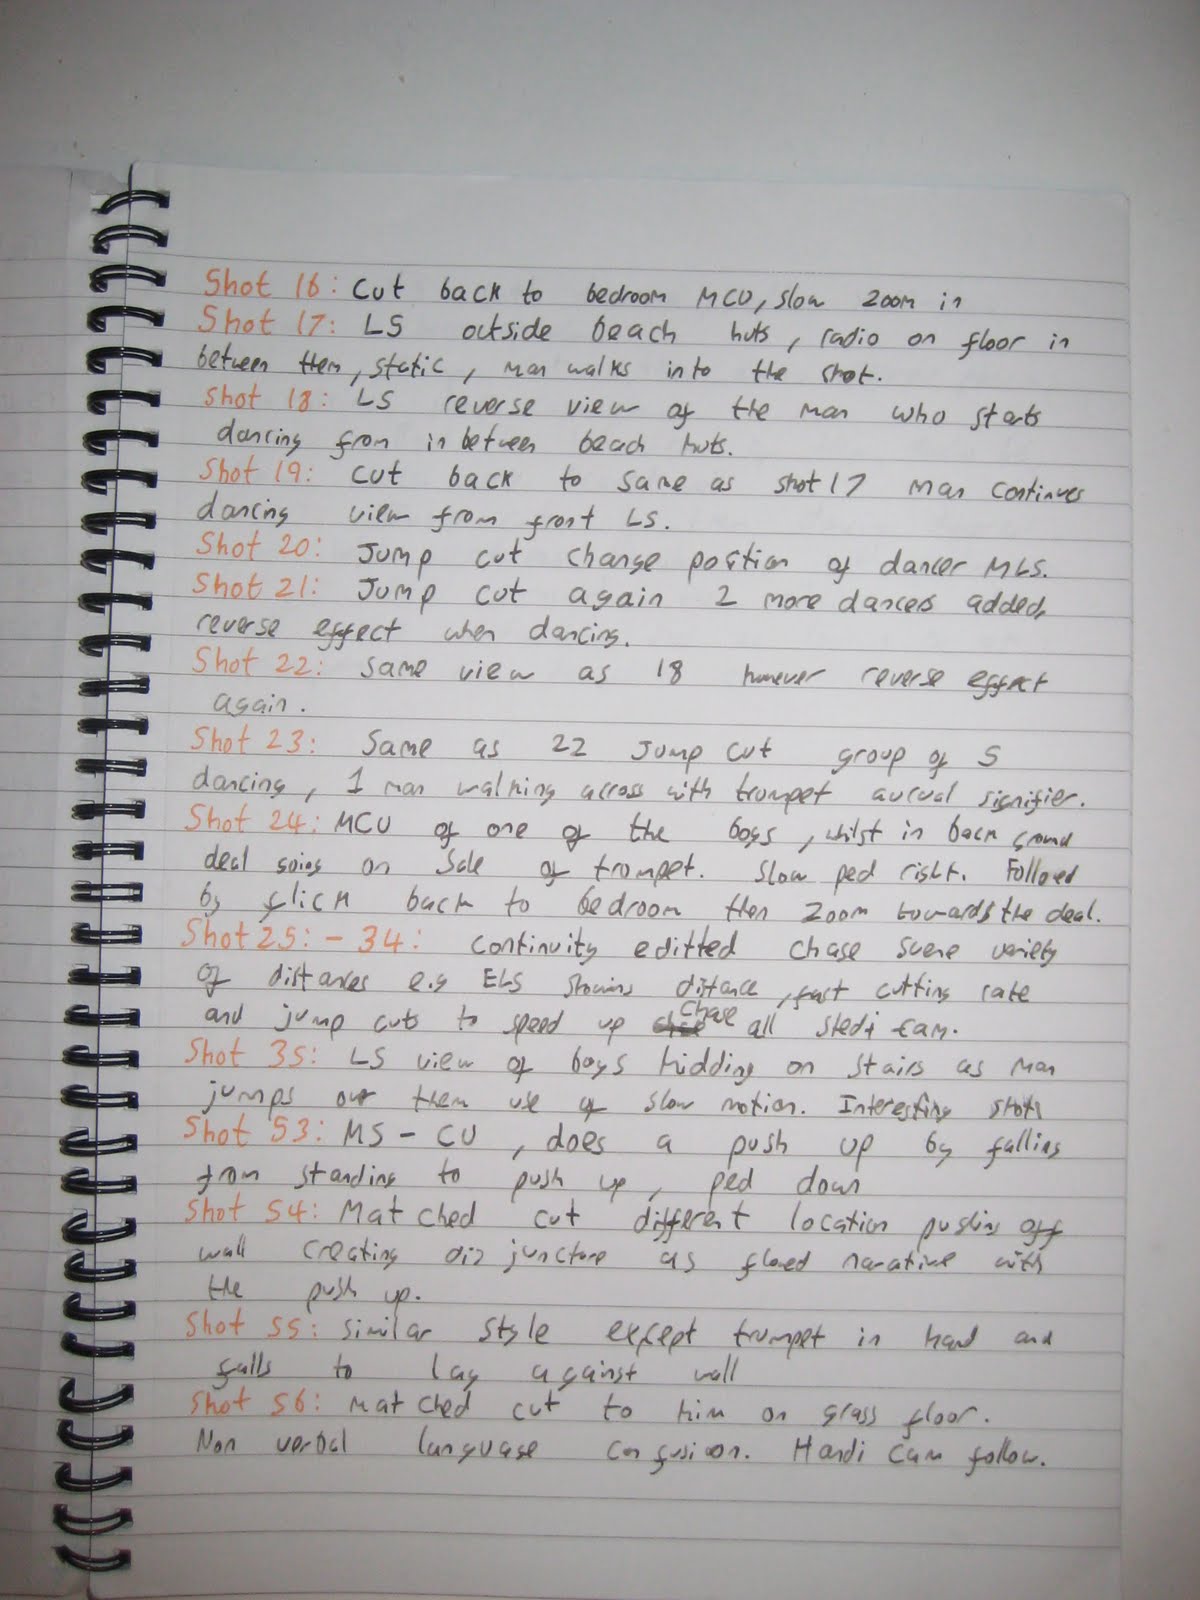 Shot 16: Cut back to bedroom MCU, slow zoom in
Shot 17: LS outside beach huts, radio on floor in
between them, static, man walks into the shot.
Shot 18: LS reverse view of the man who starts
dancing from in between beach huts.
Shot 19: Cut back to same as shot 17 man continues
dancing view from front LS.
Shot 20: Jump cut change position of dancer MLS.
Shot 21: Jump cut again 2 more dancers added,
reverse effect when dancing.
Shot 22: Same view as 18 however reverse effect
again.
Shot 23: Same as 22 Jump cut group of 5
dancing, 1 man walking across with trumpet aurual signifier.
Shot 24: MCU of one of the boys, whilst in back ground
deal going on sale of trumpet. Slow ped right. Followed
by flick back to bedroom then zoom towards the deal.
Shot 25: - 34: Continuity editted chase scene variety
of distances e.g ELS showing distance, fast cutting rate
and jump cuts to speed up chase all stedi cam.
Shot 35: LS view of boys hidding on stairs as man
jumps over them use of slow motion. Interesting shots
Shot 53: MS - CU, does a push up by falling
from standing to push up, ped down
Shot 54: Matched cut different location pushing off
wall creating disjuncture as flowed narative with
the push up.
Shot 55: Similar style except trumpet in hand and
falls to lay against wall
Shot 56: Matched cut to him on grass floor.
Non verbal language confusion. Handi cam follow.